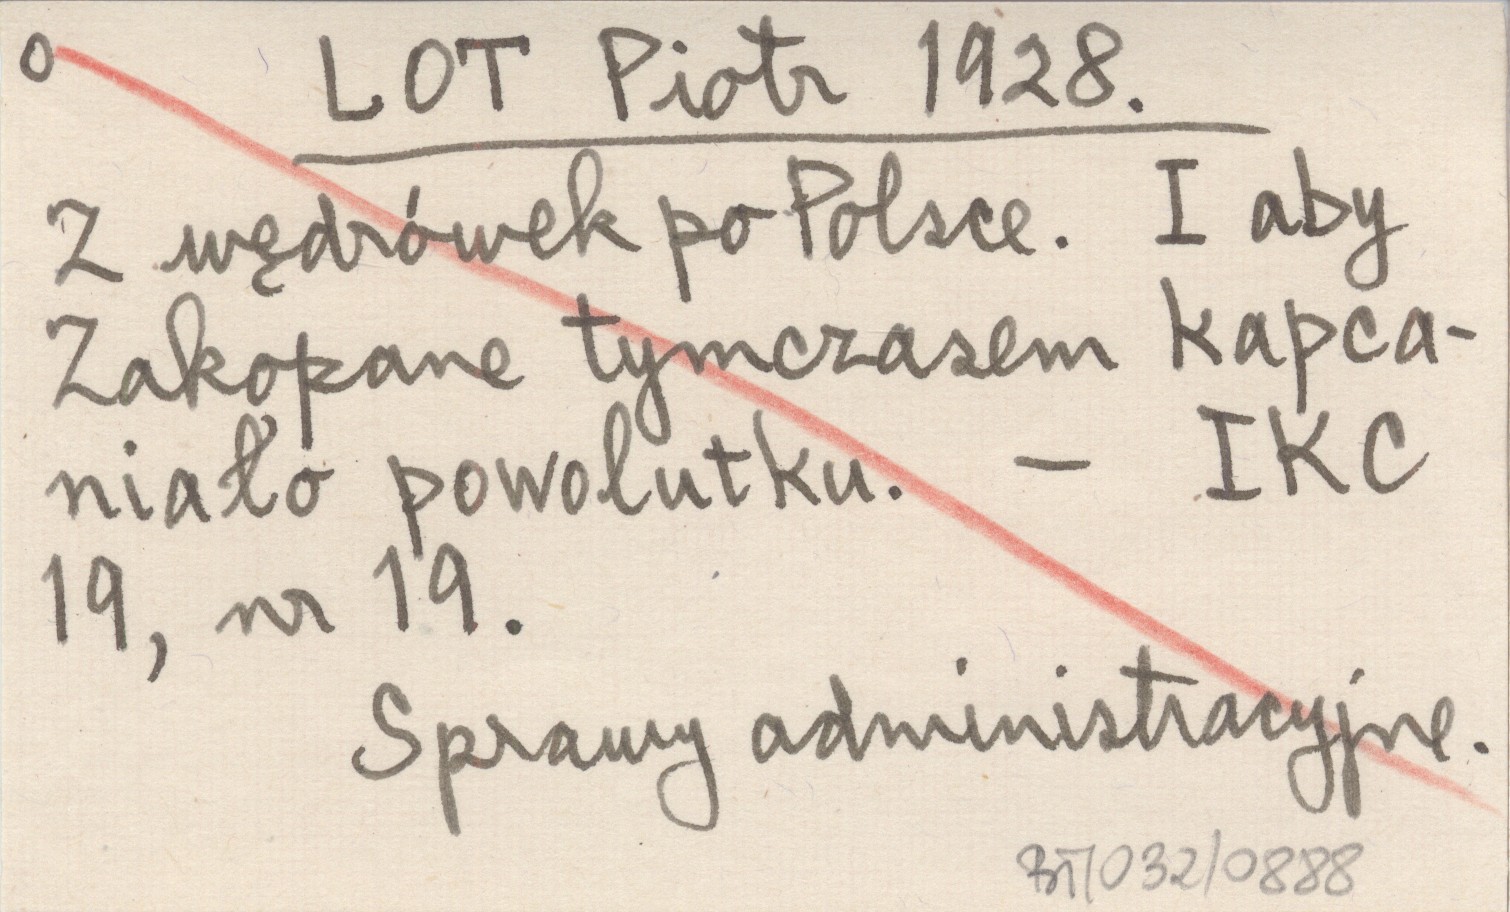 o LOT Piotr 1928.
Z wędrówek po Polsce. I aby
Zakopane tymczasem kapca-
niało powolutku. — IKC
19, nr 19.
Sprawy administracyjne.
BT/032/0888